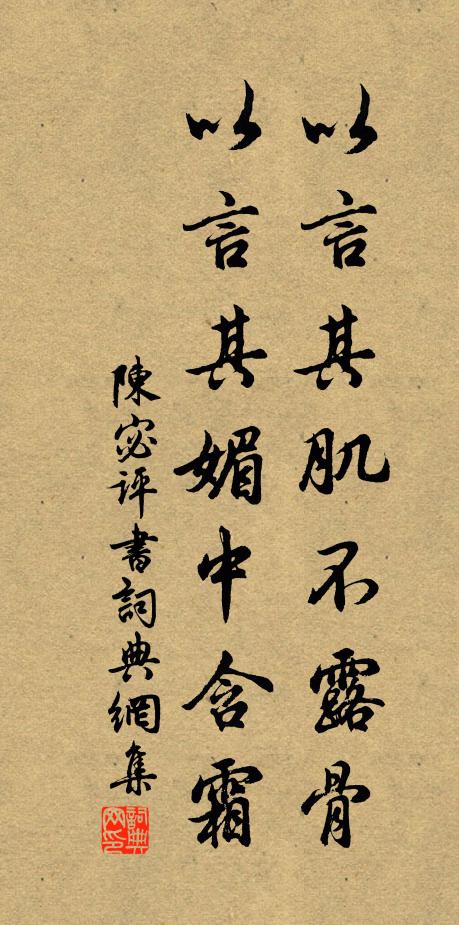 以言其肌不露骨
以言其媚中含霜
陳宓評書詞典網集
詞典网印